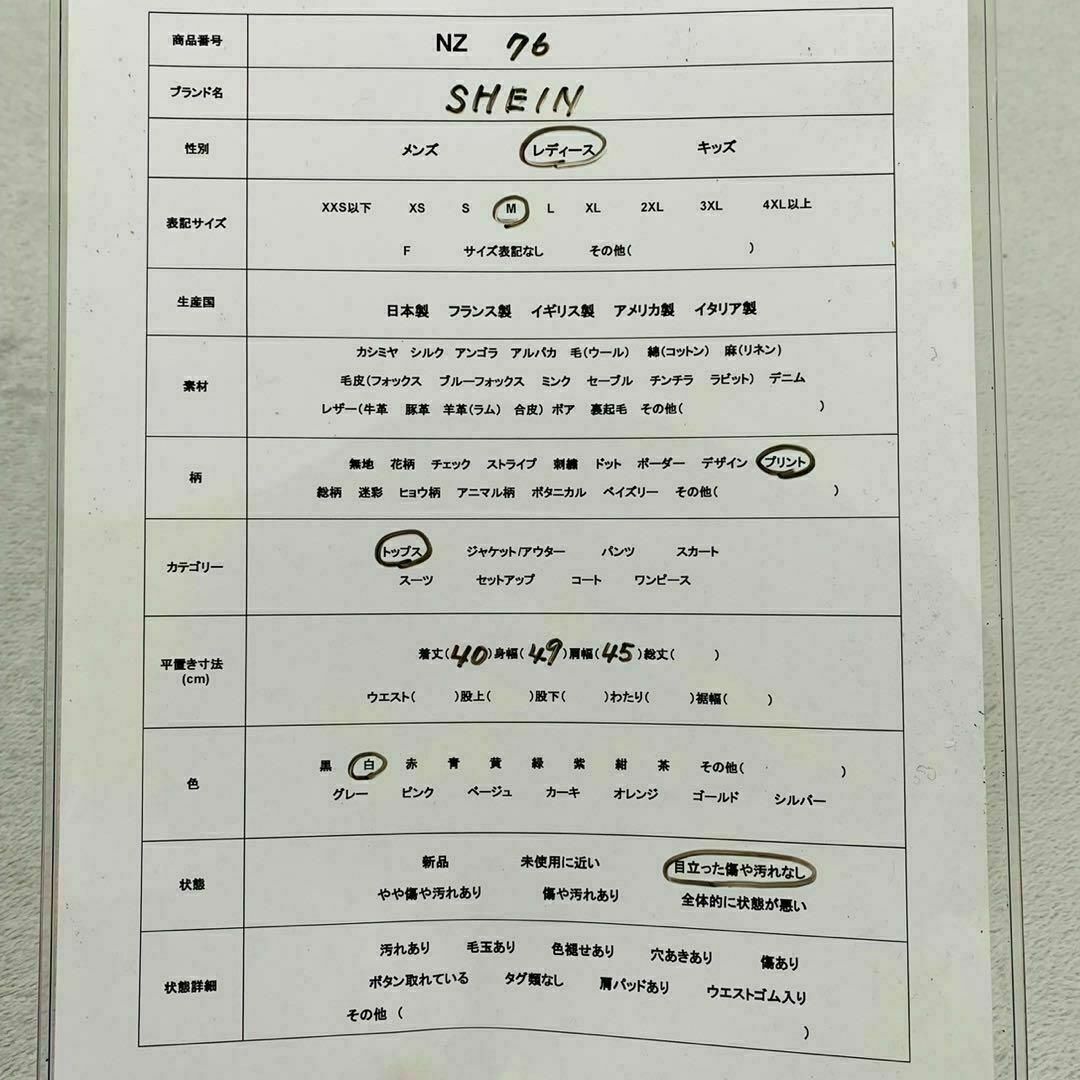 商品番号 NZ 76
ブランド名 SHEIN
性別 メンズ レディース キッズ
表記サイズ XXS以下 XS S M L XL 2XL 3XL 4XL以上
F サイズ表記なし その他( )
生産国 日本製 フランス製 イギリス製 アメリカ製 イタリア製
素材 カシミヤ シルク アンゴラ アルパカ 毛(ウール) 綿(コットン) 麻(リネン)
毛皮(フォックス ブルーフォックス ミンク セーブル チンチラ ラビット) デニム
レザー(牛革 豚革 羊革(ラム) 合皮) ボア 裏起毛 その他( )
柄 無地 花柄 チェック ストライプ 刺繍 ドット ボーダー デザイン プリント
総柄 迷彩 ヒョウ柄 アニマル柄 ボタニカル ペイズリー その他( )
カテゴリー トップス ジャケット/アウター パンツ スカート
スーツ セットアップ コート ワンピース
平置き寸法 (cm) 着丈(40)身幅(49)肩幅(45)総丈( )
ウエスト( )股上( )股下( )わたり( )裾幅( )
色 黒 白 赤 青 黄 緑 紫 紺 茶 その他( )
グレー ピンク ベージュ カーキ オレンジ ゴールド シルバー
状態 新品 未使用に近い 目立った傷や汚れなし
やや傷や汚れあり 傷や汚れあり 全体的に状態が悪い
状態詳細 汚れあり 毛玉あり 色褪せあり 穴あきあり 傷あり
ボタン取れている タグ類なし 肩パッドあり ウエストゴム入り
その他 ( )